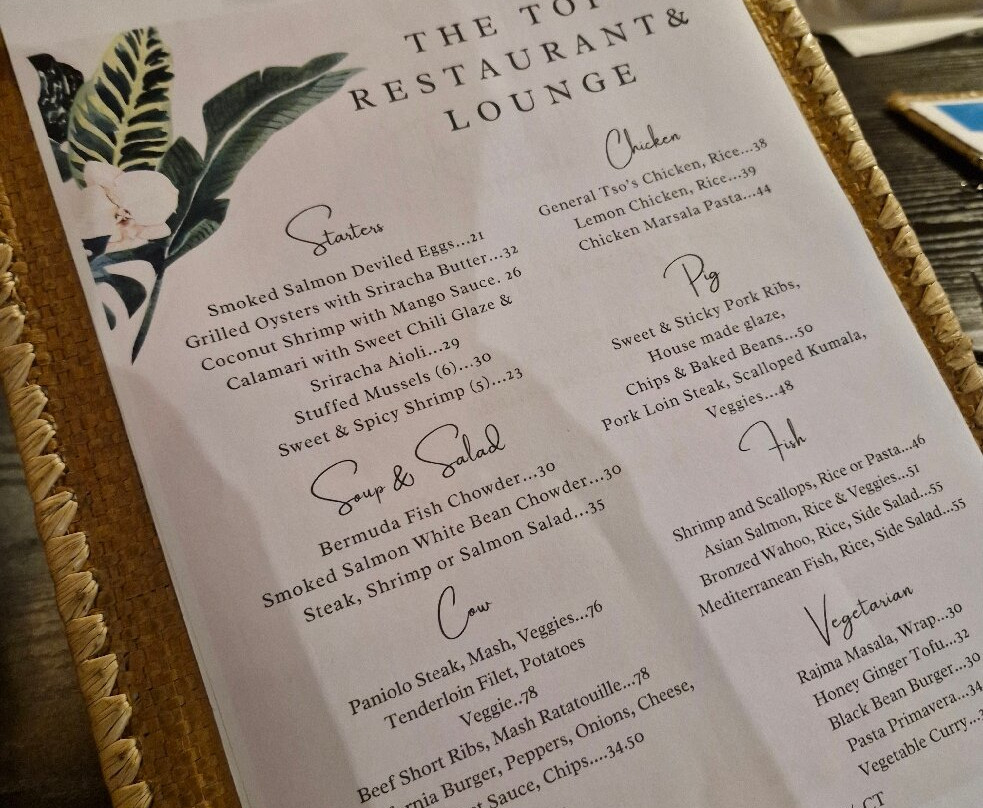 THE TOP
RESTAURANT &
LOUNGE
Starters
Smoked Salmon Deviled Eggs...21
Grilled Oysters with Sriracha Butter...32
Coconut Shrimp with Mango Sauce. 26
Calamari with Sweet Chili Glaze &
Sriracha Aioli...29
Stuffed Mussels (6)...30
Sweet & Spicy Shrimp (5)...23
Soup & Salad
Bermuda Fish Chowder...30
Smoked Salmon White Bean Chowder...30
Steak, Shrimp or Salmon Salad...35
Cow
Paniolo Steak, Mash, Veggies...76
Tenderloin Filet, Potatoes
Veggie..78
Beef Short Ribs, Mash Ratatouille...78
Burger, Peppers, Onions, Cheese,
Sauce, Chips....34.50
Chicken
General Tso's Chicken, Rice...38
Lemon Chicken, Rice...39
Chicken Marsala Pasta...44
Pig
Sweet & Sticky Pork Ribs,
House made glaze,
Chips & Baked Beans...50
Pork Loin Steak, Scalloped Kumala,
Veggies...48
Fish
Shrimp and Scallops, Rice or Pasta...46
Asian Salmon, Rice & Veggies...51
Bronzed Wahoo, Rice, Side Salad...55
Mediterranean Fish, Rice, Side Salad...55
Vegetarian
Rajma Masala, Wrap...30
Honey Ginger Tofu...32
Black Bean Burger...30
Pasta Primavera...34
Vegetable Curry...